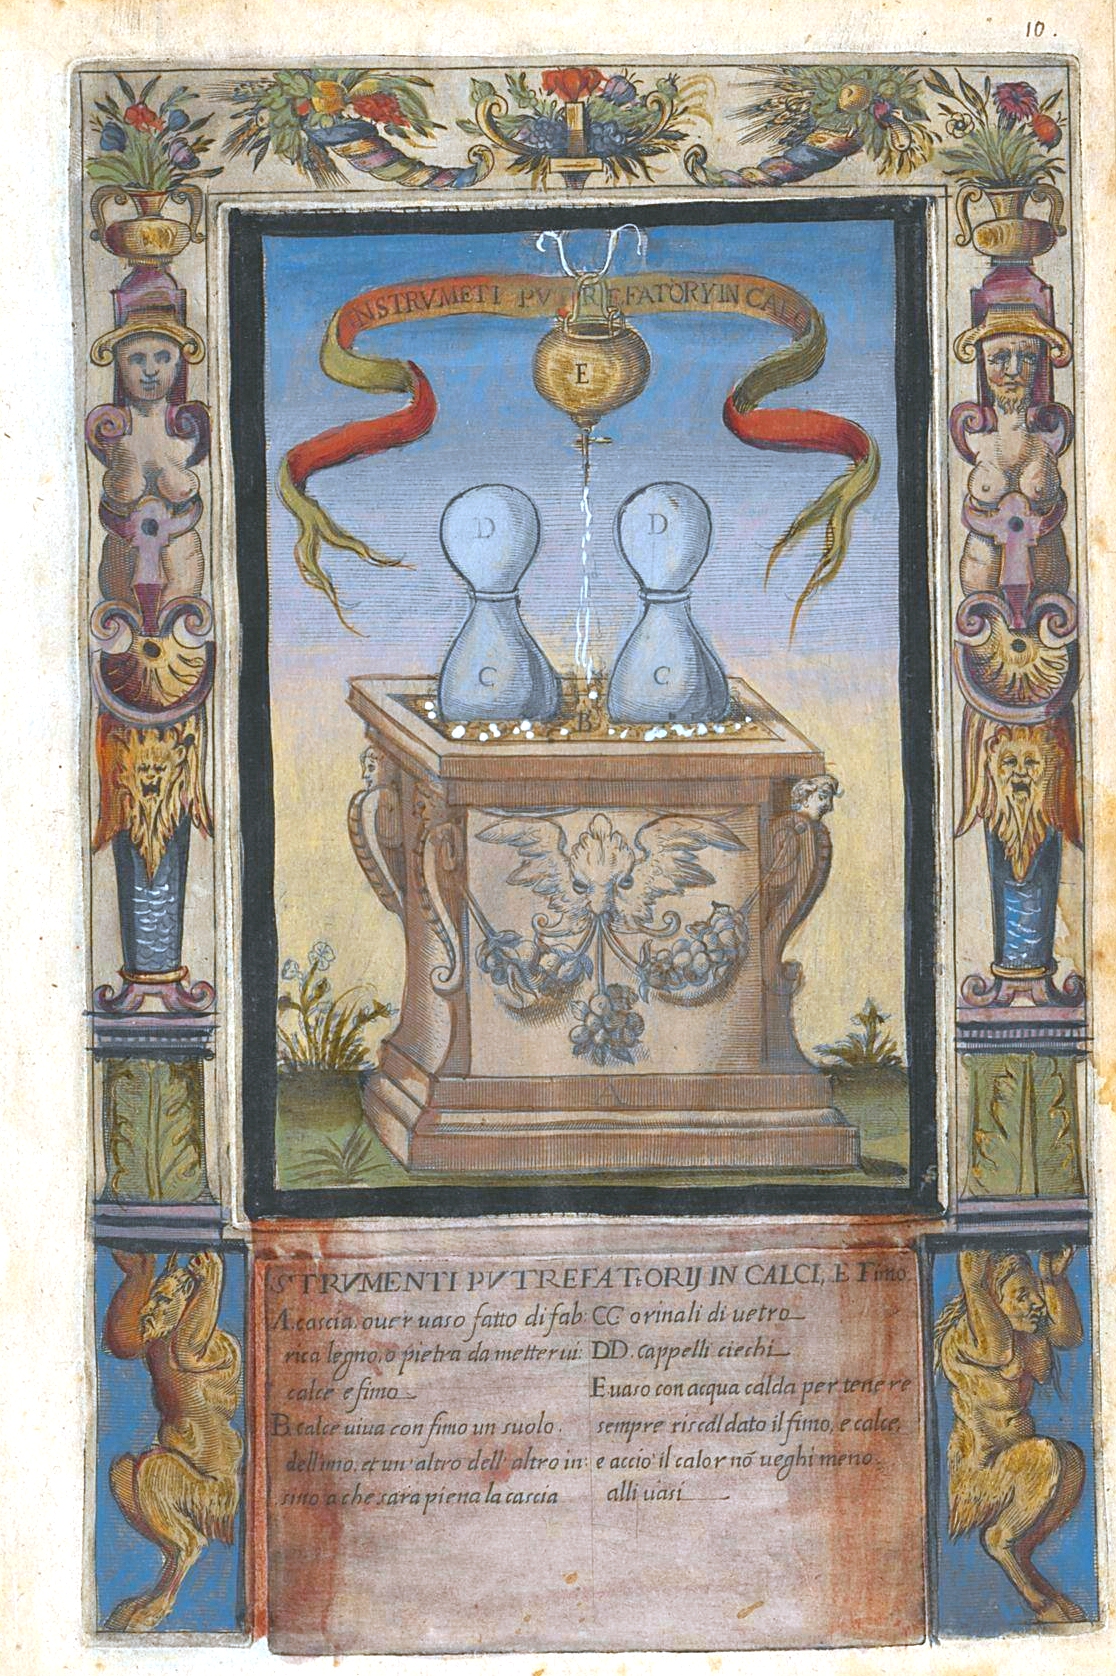 10.
INSTRVMETI PVTREFATORY IN CALC
E
D
D
C
C
B
A
STRVMENTI PVTREFATtORIJ IN CALCI, E Fimo.
A. cascia, ouer uaso fatto di fab:
rica legno, o pietra da metterui:
calce e fimo
B. calce uiua con fimo un suolo.
dell'uno, et un' altro dell' altro in:
sino a che sara piena la cascia
CC orinali di uetro
DD. cappelli ciechi
E uaso con acqua calda per tenere
sempre riscaldato il fimo, e calce,
e accio' il calor nõ ueghi meno.
alli uasi